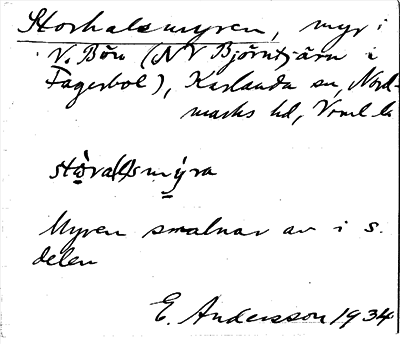 Storhalsmyren, myr i
V. Bön (NV Björntjärn i
Fagerbol), Karlanda sn, Nord-
marks hd, Vrml la
stòra(l)smýra
Myren smalnar av i s.
delen
E. Andersson 1934